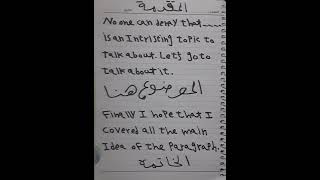 المقدمة
No one can deney that ----
Is an Intrissting topic to
talk about. Let's go to
talk about it.
الموضوع هنا
Finally I hope that I
Covered all the main
Idea of the Paragraph.
الخاتمة